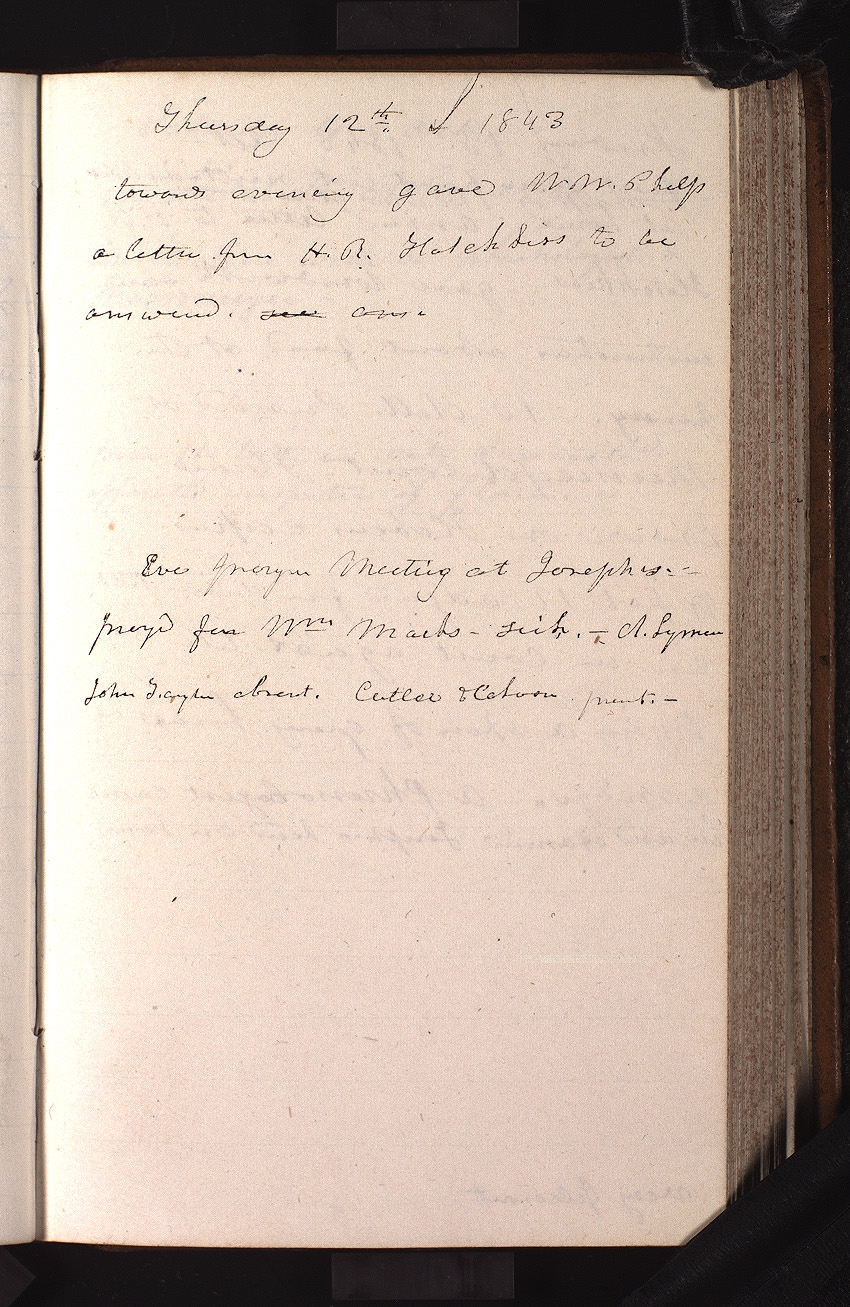 Thursday 12th 1843
towards evening gave W. W. Phelps
a letter from H. R. Hotchkiss to be
answered. see ans.
Eve prayer Meeting at Joseph's
pray'd for Wm Marks - sick. - A. Lyman
John Taylor absent. Cutler & Cahoon present. -